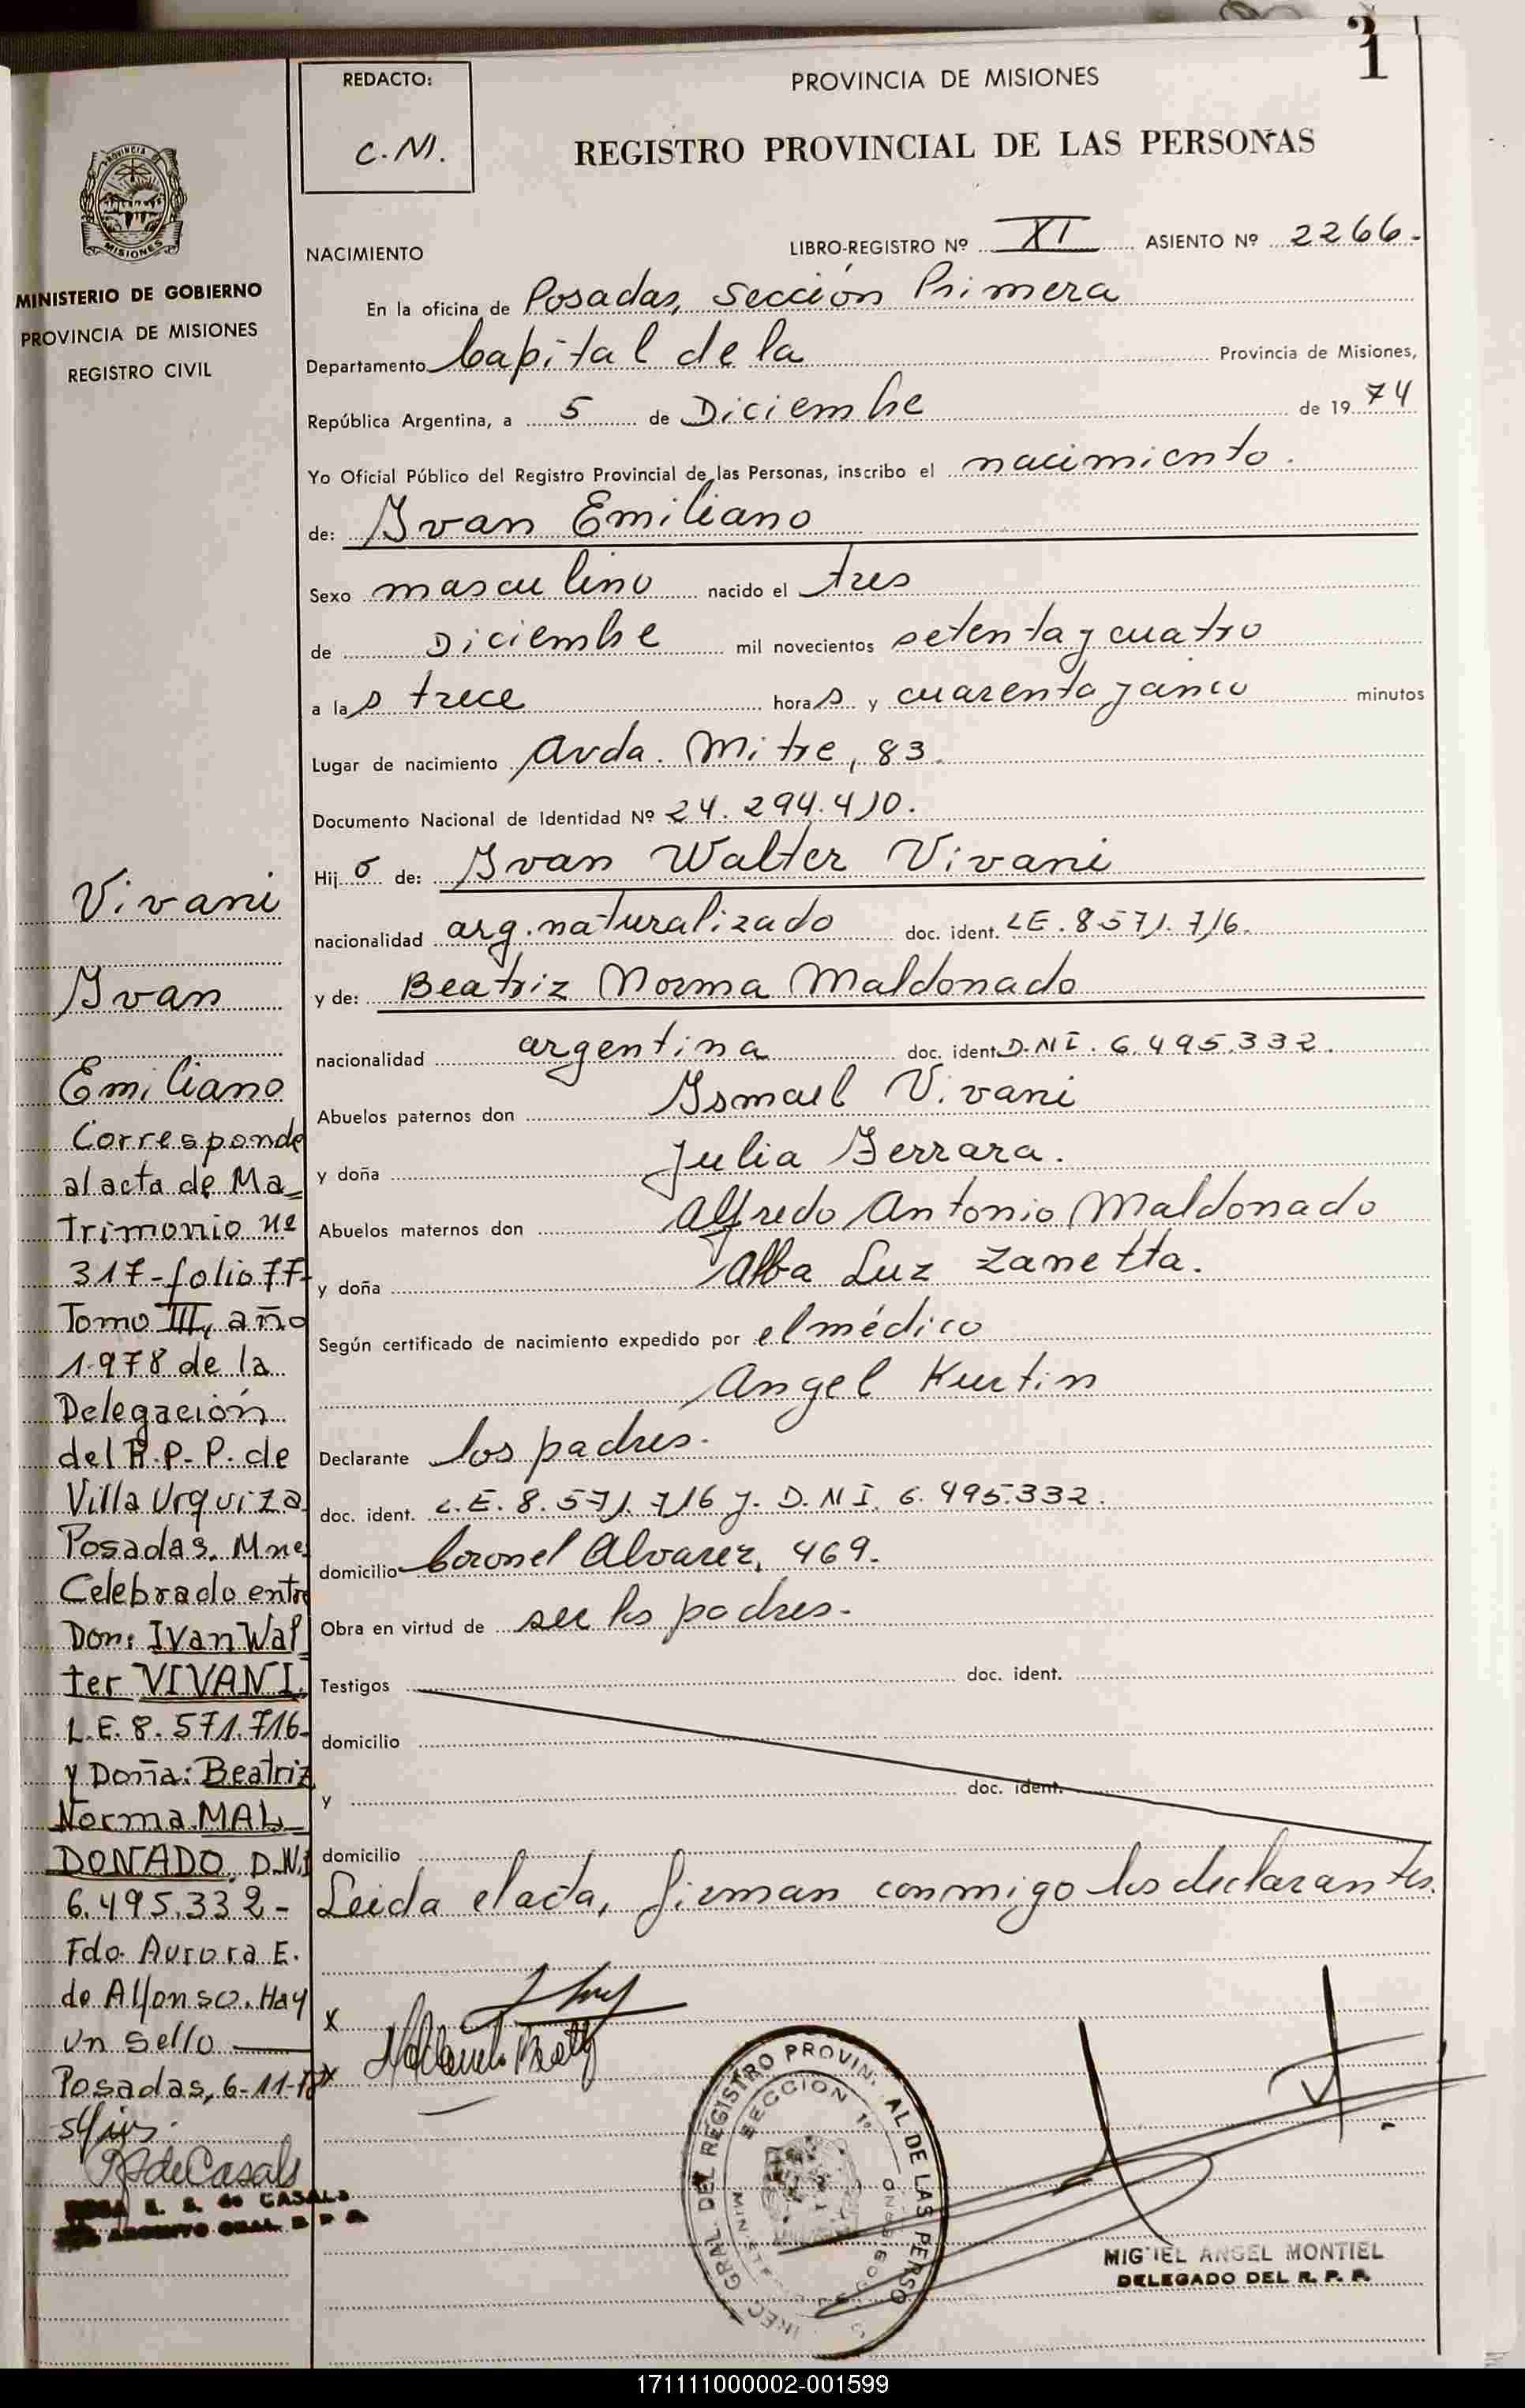 1
REDACTO:
C.M.
PROVINCIA DE MISIONES
REGISTRO PROVINCIAL DE LAS PERSONAS
PROVINCIA DE
MISIONES
MINISTERIO DE GOBIERNO
PROVINCIA DE MISIONES
REGISTRO CIVIL
NACIMIENTO
LIBRO-REGISTRO Nº XI ASIENTO Nº 2266.
En la oficina de Posadas, Sección Primera
Departamento Capital de la Provincia de Misiones,
República Argentina, a 5 de Diciembre de 1974
Yo Oficial Público del Registro Provincial de las Personas, inscribo el nacimiento.
de: Ivan Emiliano
Sexo masculino nacido el tres
de Diciembre mil novecientos setenta y cuatro
a las trece horas y cuarenta y cinco minutos
Lugar de nacimiento Avda. Mitre, 83.
Documento Nacional de Identidad Nº 24.294.410.
Hijo de: Ivan Walter Vivani
nacionalidad arg. naturalizado doc. ident. LE. 8.571.716.
y de: Beatriz Norma Maldonado
nacionalidad argentina doc. ident. D.N.I. 6.495.332.
Abuelos paternos don Ismael Vivani
y doña Julia Ferrara.
Abuelos maternos don Alfredo Antonio Maldonado
y doña Alba Luz Zanetta.
Según certificado de nacimiento expedido por el médico
Angel Kurtin
Declarante los padres.
doc. ident. L.E. 8.571.716 y. D.N.I. 6.495.332.
domicilio Coronel Alvarez, 469.
Obra en virtud de ser los padres.
Testigos doc. ident.
domicilio
y doc. ident.
domicilio
Leida el acta, firman conmigo los declarantes.
x
x
Vivani
Ivan
Emiliano
Corresponde
al acta de Ma-
trimonio Nº
317-folio 77-
Tomo III, año
1.978 de la
Delegación
del R.P.P. de
Villa Urquiza
Posadas. Mnes
Celebrado entre
Don: Ivan Wal-
ter VIVANI.
L.E. 8.571.716-
y Doña: Beatriz
Norma MAL-
DONADO, D.N.I
6.495.332-
Fdo. Aurora E.
de Alfonso. Hay
un sello
Posadas, 6-11-
R de Casals
E. S. de CASALS
ARCHIVO GRAL R P P
GRAL. DEL REGISTRO PROVIN. AL DE LAS PERSO
SECCION 1º
MIGUEL ANGEL MONTIEL
DELEGADO DEL R. P. P.
171111000002-001599